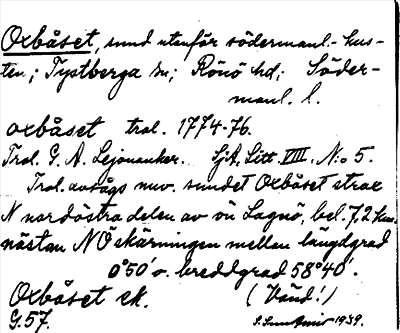 Oxbåset, sund utanför södermanl.-kus-
ten; Tystberga sn; Rönö hd; Söder-
manl. l.
oxbåset tral. 1774-76.
Tral. G. A. Lejonanker. SjA, Litt. VIII. N:o 5.
Tral. avsågs nuv. sundet Oxbåset strax
N nordöstra delen av ön Lagnö, bel. 7,2 km.
nästan NÖ skärningen mellan längdgrad
0°50' o. breddgrad 58°40'.
Oxbåset ek.
(Vänd!)
G.57.
1939.